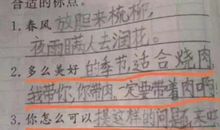 合适的标点。
1.春风放胆来梳柳,
夜雨瞒人去润花。
2.多么美好的季节,适合烧肉
我带你,你带肉,一定要带着肉啊!
3.你怎么可以提这样的问题